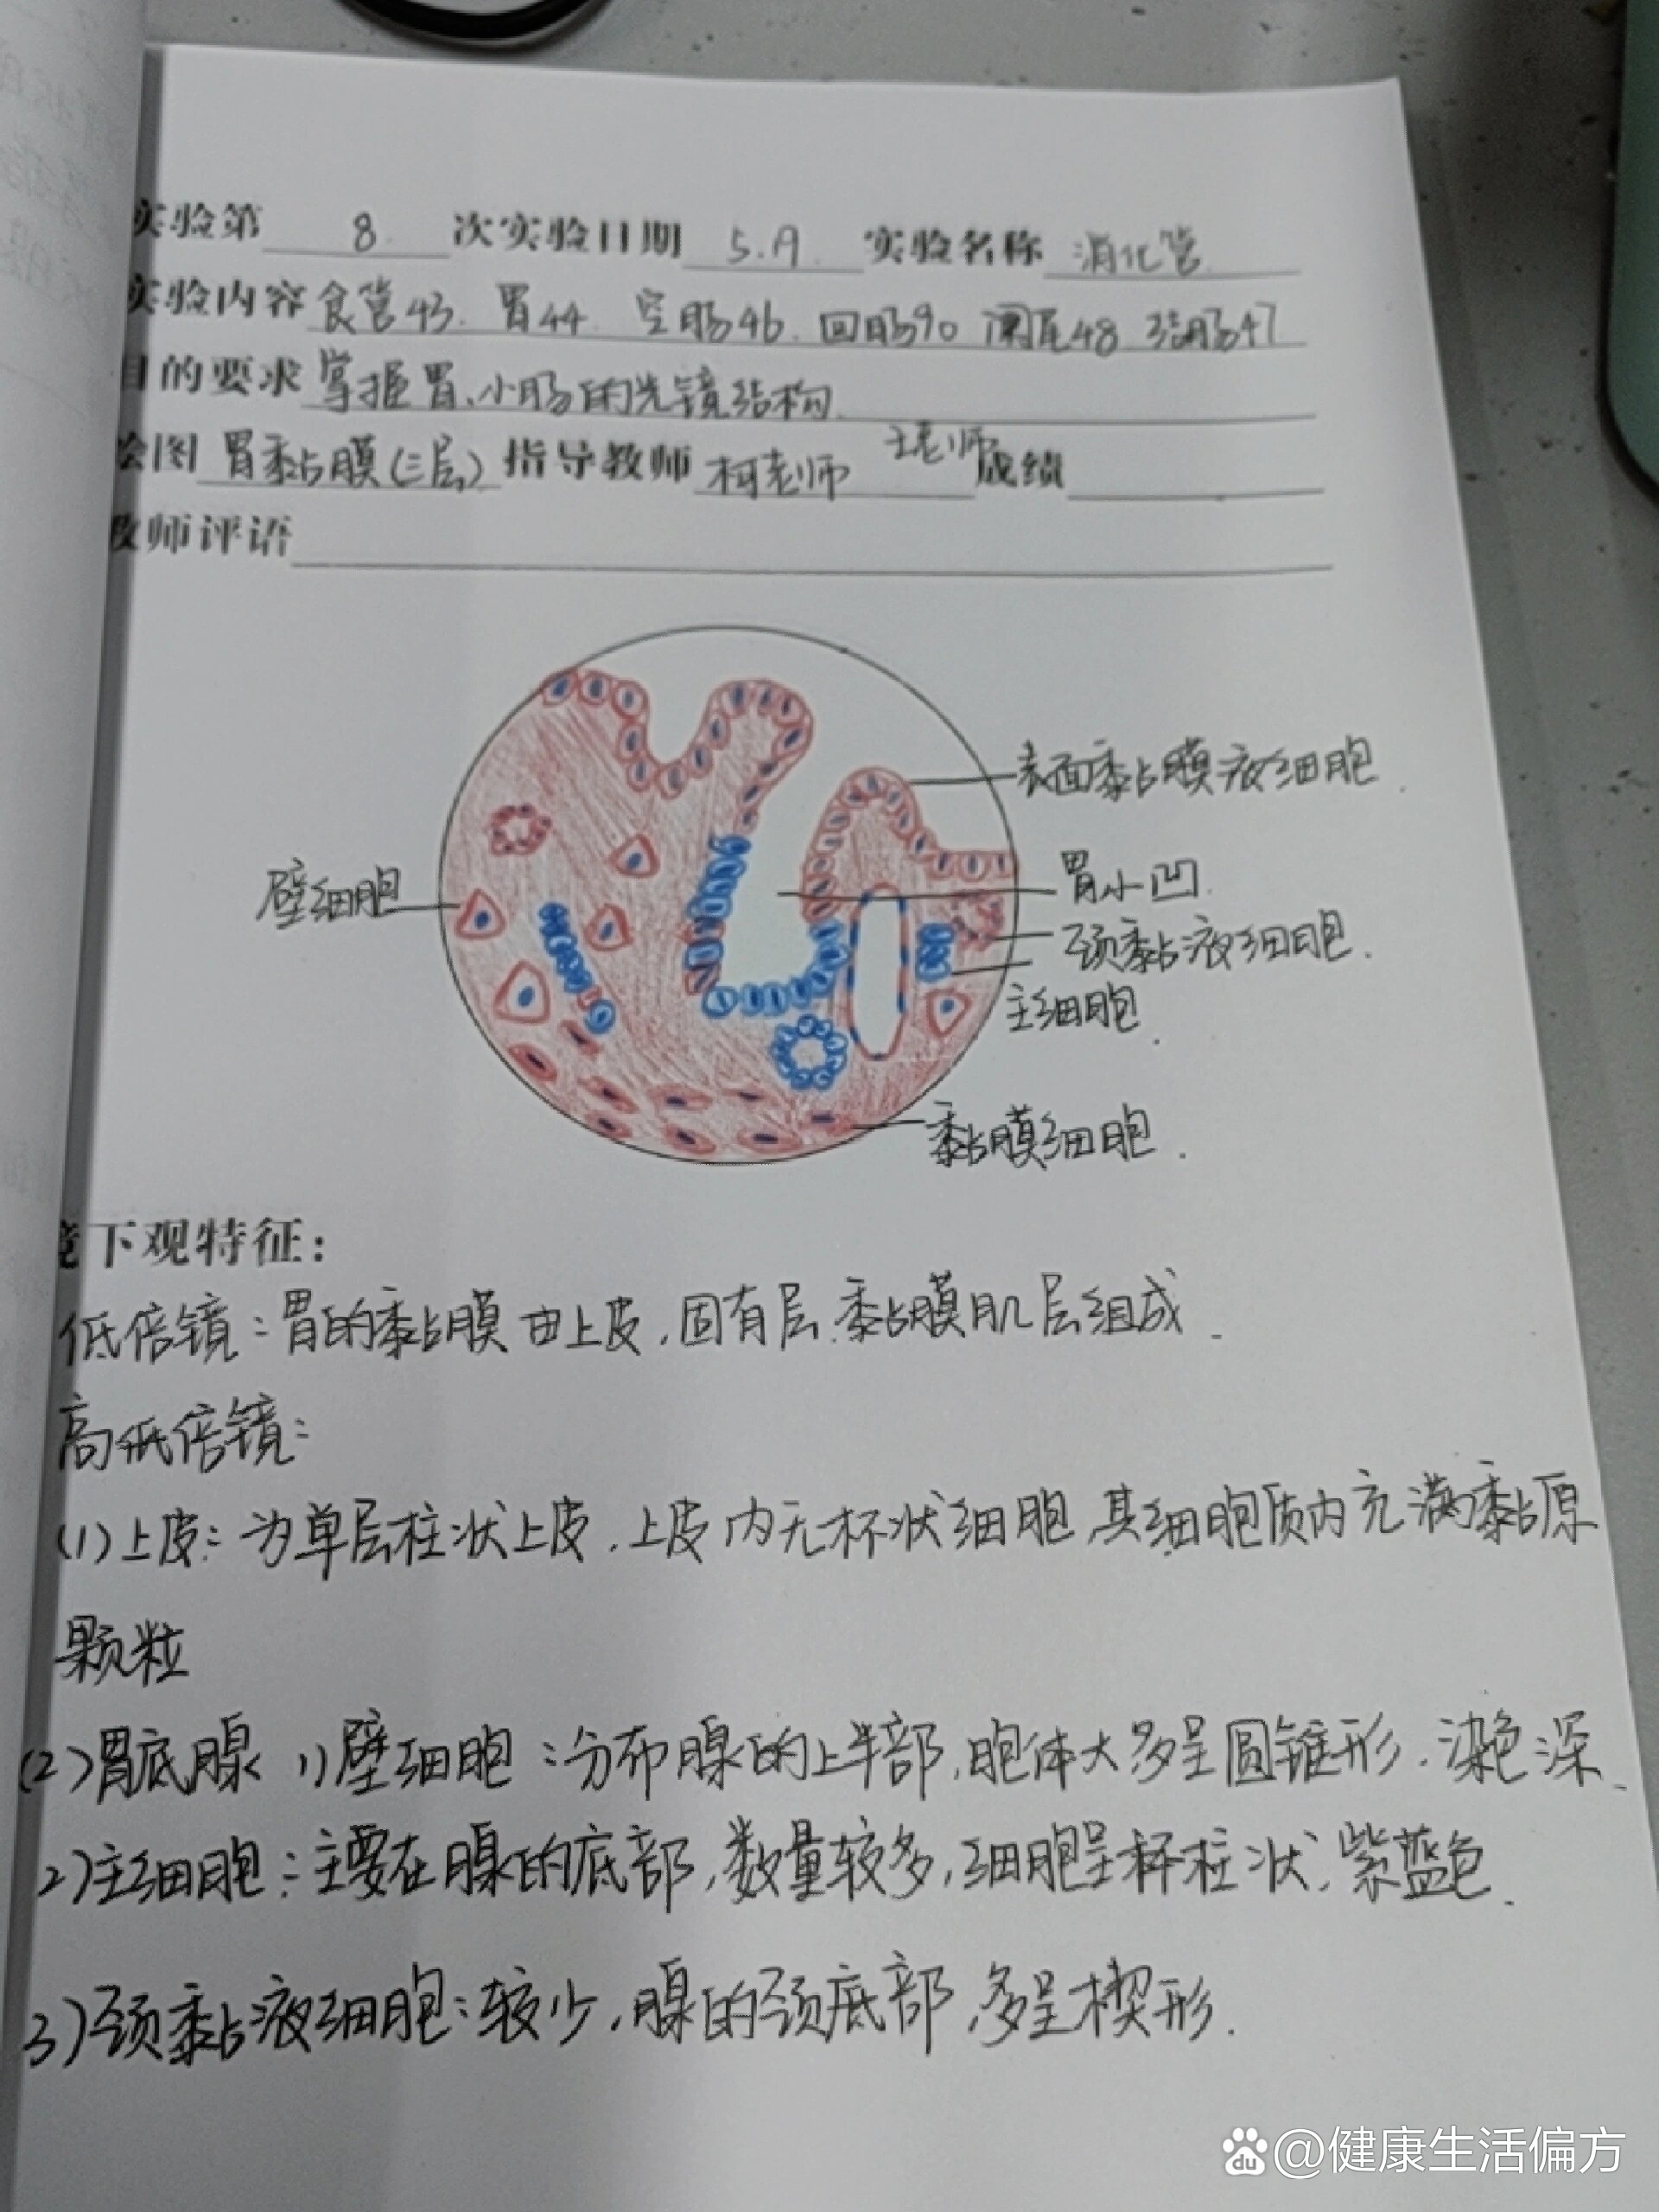 实验第 8 次实验日期 5.19 实验名称 消化管
实验内容 食管43. 胃44. 空肠46. 回肠90 阑尾48 结肠47
目的要求 掌握胃、小肠的光镜结构
绘图 胃黏膜(三层) 指导教师 柯老师 王老师 成绩
教师评语
表面黏膜液细胞.
壁细胞
胃小凹.
颈黏液细胞.
主细胞.
黏膜细胞.
镜下观特征:
低倍镜:胃的黏膜由上皮,固有层.黏膜肌层组成.
高低倍镜:
(1)上皮:为单层柱状上皮.上皮内无杯状细胞,其细胞质内充满黏原
颗粒
(2)胃底腺 1)壁细胞:分布腺的上半部,胞体大多呈圆锥形.染色深.
2)主细胞:主要在腺的底部,数量较多,细胞呈柱状,紫蓝色.
3)颈黏液细胞:较少,腺的颈底部,多呈楔形.
du @健康生活偏方